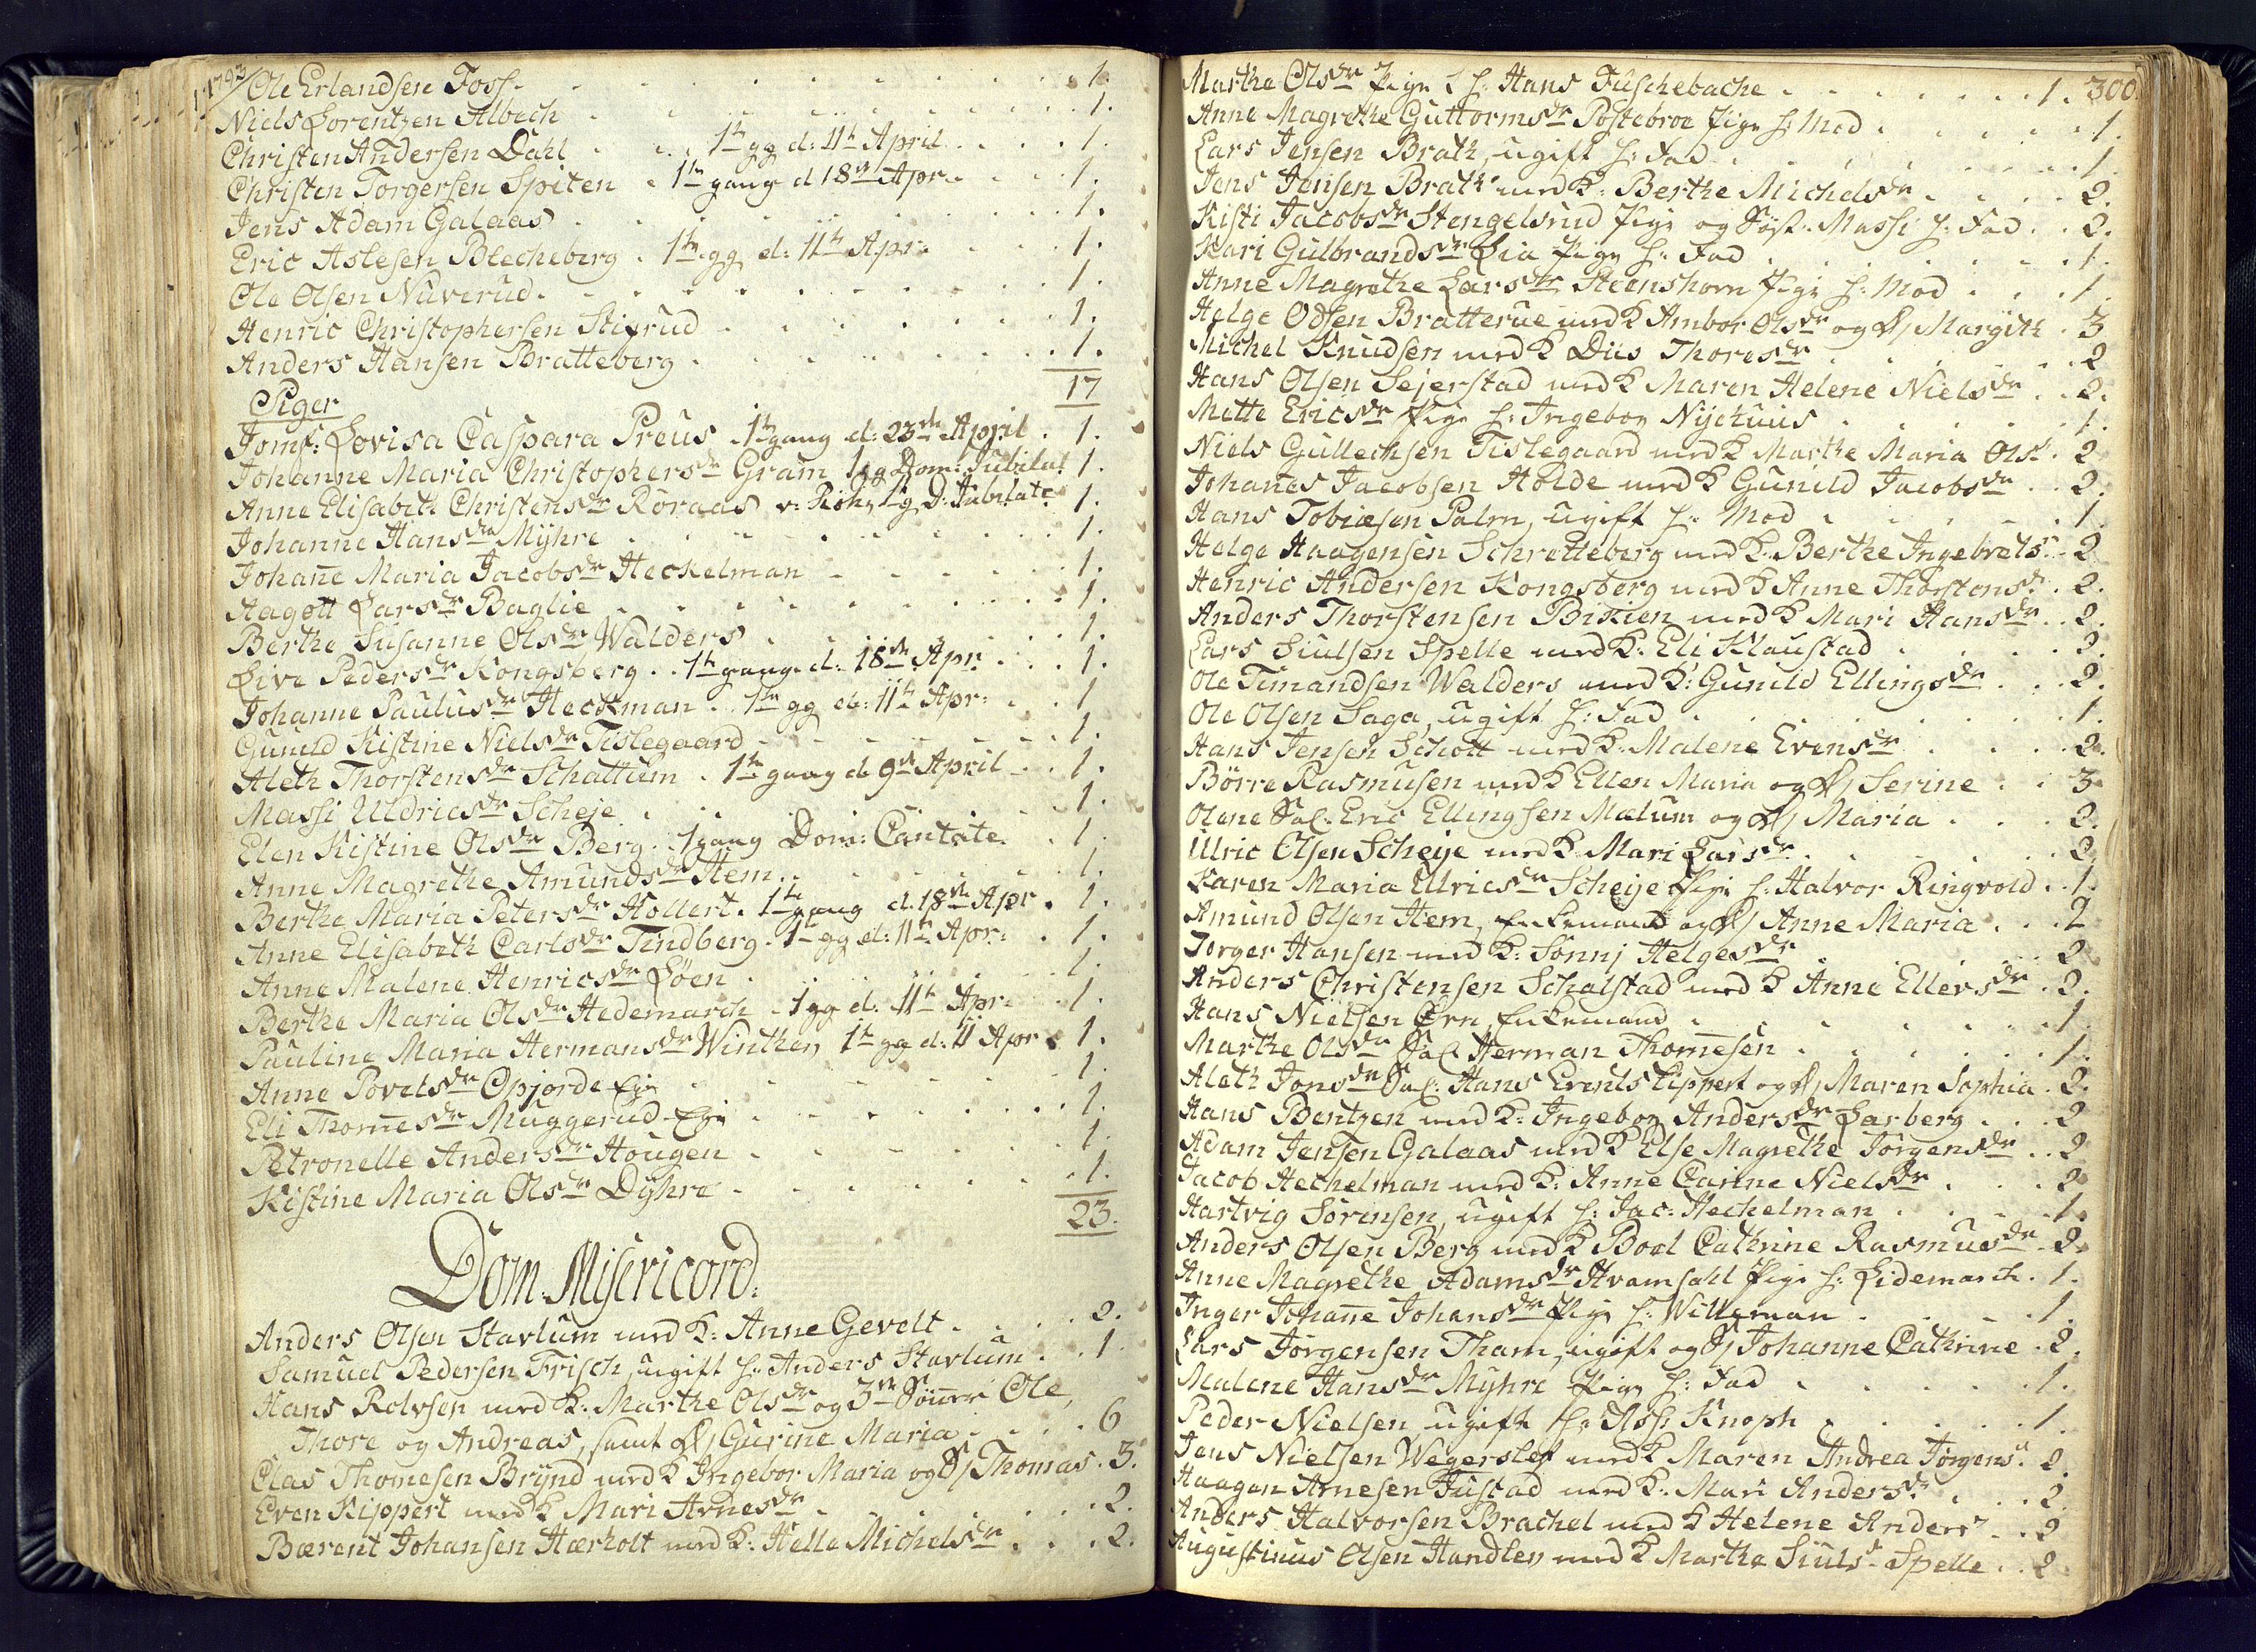 1793
Ole Erlandsen Foss . . . 1.
Niels Lorentzen Albech . . . 1.
Christen Andersen Dahl . . . 1te gg d: 11te April . . . 1.
Christen Torgersen Spiten . 1te gang d 18de Apr. . . . 1.
Jens Adam Galaas . . . 1.
Eric Aslesen Blecheberg . 1te gg d: 11te Apr: . . . 1.
Ole Olsen Nuverud . . . 1.
Henric Christophersen Stigrud . . . 1.
Anders Hansen Bratteberg . . . 1.
17
Piger
Jomf: Lovisa Caspara Preus . 1te gang d: 23de April . 1.
Johanne Maria Christophersdr Gram 1 gg Dom: Jubilat 1.
Anne Elisabeth Christensdr Röraas v: Röhr, 1 g D: Jubilate 1.
Johanne Hansdr Mÿhre . . . 1.
Johañe Maria Jacobsdr Heckelman . . . 1.
Aagott Larsdr Baglie . . . 1.
Berthe Susanne Olsdr Walders . . . 1.
Live Pedersdr Kongsberg . . 1te gang d: 18de Apr. . . . 1.
Johanne Paulusdr Heckman . 1te gg d: 11te Apr: . . 1
Gunild Kistine Nielsdr Tislegaard . . . 1.
Aleth Thorstensdr Schattum . 1te gang d 9de April . . 1.
Massi Uldricsdr Scheje . . . 1.
Elen Kistine Olsdr Berg . 1 gang Dom: Cantate . . 1.
Anne Magrethe Amundsdr Hem . . . 1.
Berthe Maria Petersdr Hollert . 1te gang d. 18de Apr . 1.
Anne Elisabeth Carlsdr Tindberg . 1te gg d: 11te Apr: . 1.
Anne Malene Henricsdr Löen . . . 1.
Berthe Maria Olsdr Hedemarch . 1 gg d: 11te Apr: . . 1.
Pauline Maria Hermansdr Winther, 1te gg d: 11 Apr . 1.
Anne Povelsdr Opjorde Eger . . . 1.
Eli Thomesdr Muggerud Eger . . . 1.
Petronelle Andersdr Hougen . . . 1.
Kistine Maria Olsdr Dÿhre . . . 1.
23.
Dom. Misericord:
Anders Olsen Stavlum med K: Anne Gevelt . . . 2.
Samuel Pedersen Frisch, ugift h: Anders Stavlum . . 1.
Hans Rolvsen med K: Marthe Olsdr og 3de Söñer Ole,
Thore og Andreas, samt D/ Gurine Maria . . . 6
Clas Thomesen Brÿnd med K Ingebor Maria og S/ Thomas . 3.
Even Kippert med K Mari Arnesdr . . . 2.
Bærent Johansen Hærholt med K: Helle Michelsdr . . . 2.
300
Marthe Olsdr Pige h: Hans Fuschebache . . . 1.
Anne Magrethe Guttormsdr Postebroe Pige h: Mod . . . 1.
Lars Jensen Brath, ugift h: Fad . . . 1.
Jens Jensen Brath med K: Berthe Michelsdr . . . 2.
Kisti Jacobsdr Stengelsrud Pige og Söst. Massi h: Fad . . 2.
Kari Gulbrandsdr Lia Pige h: Fad . . . 1.
Anne Magrethe Larsdr Steenshorn Pige h: Mod . . . 1.
Helge Odsen Bratterue med K Ambor Olsdr og D/ Margith . 3
Michel Knudsen med K Diis Thoresdr . . . 2
Hans Olsen Sejerstad med K Maren Helene Nielsdr . . 2.
Mette Ericsdr Pige h: Ingebor Nÿehuus . . . 1.
Niels Gullechsen Tislegaard med K Marthe Maria Olsd. . 2
Johañes Jacobsen Holde med K Gunild Jacobsdr . . 2.
Hans Tobiæsen Palm, ugift h: Mod . . . 1.
Helge Haagensen Schretteberg med K: Berthe Ingebretsd . 2
Henric Andersen Kongsberg med K Anne Thorstensd. . 2.
Anders Thorstensen Bikien med K Mari Hansdr . . 2.
Lars Siulsen Spelle med K: Eli Klaustad . . . 2.
Ole Timandsen Walders med K: Gunild Ellingsdr . . . 2.
Ole Olsen Saga, ugift h: Fad . . . 1.
Hans Jensen Schott med K: Malene Evensdr . . . 2.
Börre Rasmusen med K Ellen Maria og D/ Serine . . 3
Olene Sal. Eric Ellingsen Mælum og D/ Maria . . . 2.
Ulric Olsen Scheje med K: Mari Larsdr . . . 2
Karen Maria Ulricsdr Scheije Pige h: Halvor Ringvold . . 1.
Amund Olsen Hem, Enkemand og D/ Anne Maria . . . 2
Torger Hansen med K: Sönnj Helgesdr . . . 2
Anders Christensen Schalstad med K Anne Ellersdr . 2.
Hans Nielsen Örn, Enkemand . . . 1
Marthe Olsdr Sal Herman Thomesen . . . 1.
Aleth Jonsdr Sal: Hans Events Kippert og D/ Maren Sophia . 2.
Hans Bentzen med K: Ingebor Andersdr Larberg . . . 2
Adam Jensen Galaas med K Else Magrethe Jörgensdr . . 2
Jacob Hechelman med K: Anne Carine Nielsdr . . . 2
Hartvig Sörensen, ugift h: Jac: Hechelman . . . 1.
Anders Olsen Berg med K Boel Cathrine Rasmusdr . 2.
Anne Magrethe Adamsdr Hvamsahl Pige h: Hidemarch . 1.
Inger Johañe Johansdr Pige h: Willeman . . . 1.
Lars Jörgensen Tham, ugift og S/ Johanne Cathrine . 2.
Malene Hansdr Mÿhre Pige h: Fad . . . 1.
Peder Nielsen, ugift h: Ass: Knoph . . . 1.
Jens Nielsen Wegersløf med K Maren Andrea Jörgensd 2.
Haagen Arnesen Fustad med K: Mari Andersd. . . . 2.
Anders Halvorsen Brachel med K Helene Andersd . . 2
Augustinus Olsen Handler, med K Marthe Siulsd Spelle . . 2